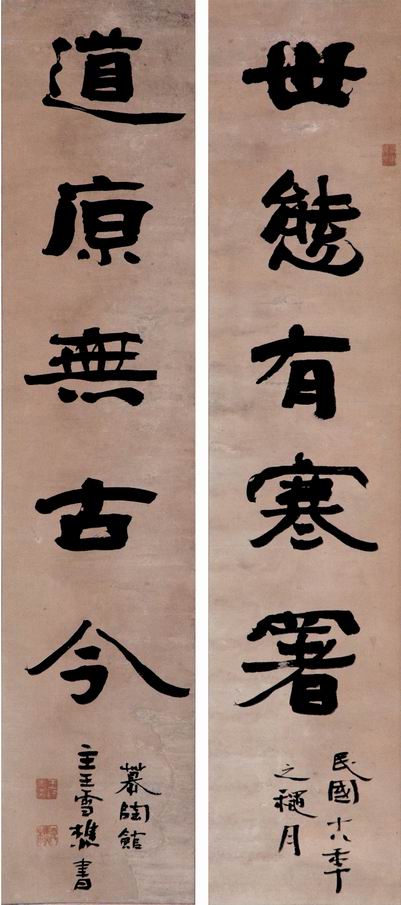 世態有寒署
民國十八年
之穐月
道原無古今
慕陶館
主王雪樵書